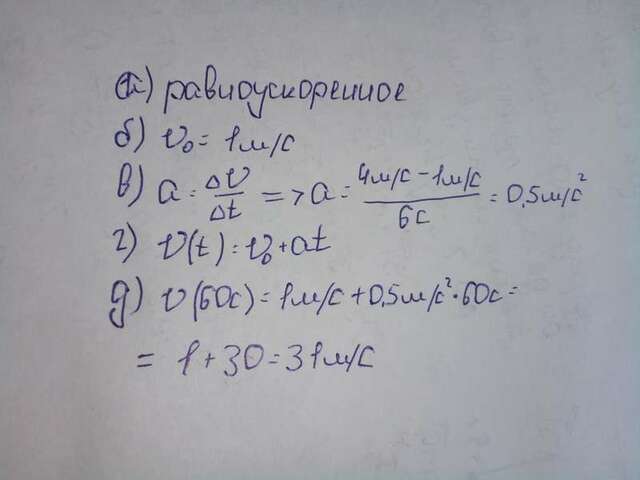 а) равноускоренное
б) v₀ = 1м/с
в) a = Δv/Δt => a = 4м/с - 1м/с / 6с = 0,5м/с²
г) v(t) = v₀ + at
д) v(60с) = 1м/с + 0,5м/с² · 60с =
= 1 + 30 = 31м/с